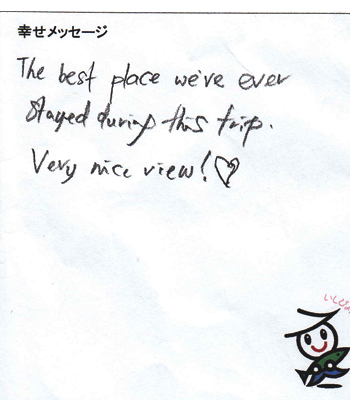 幸せメッセージ
The best place we've ever
stayed during this trip.
Very nice view!♡